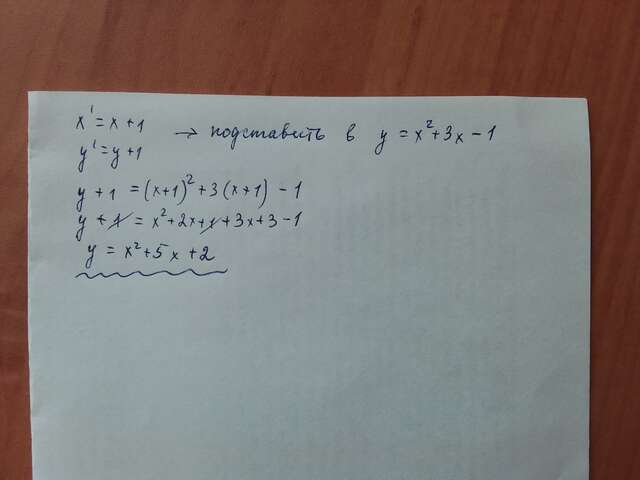 x' = x + 1
y' = y + 1
→ подставить в y = x² + 3x - 1
y + 1 = (x+1)² + 3(x+1) - 1
y + 1 = x² + 2x + 1 + 3x + 3 - 1
y = x² + 5x + 2